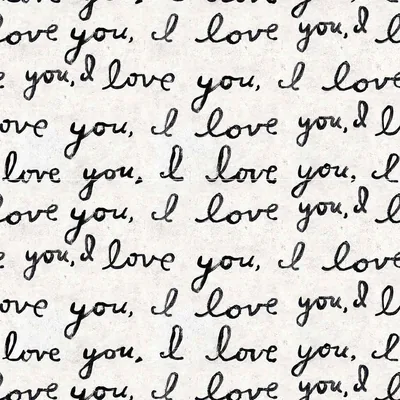 love you, I love you, I l
you, I love you, I love
love you, I love you, I l
love you, I love you, I
love you, I love you, I l
you, I love you, I love
love you, I love you, I l
love you, I love you, I
love you, I love you, I l